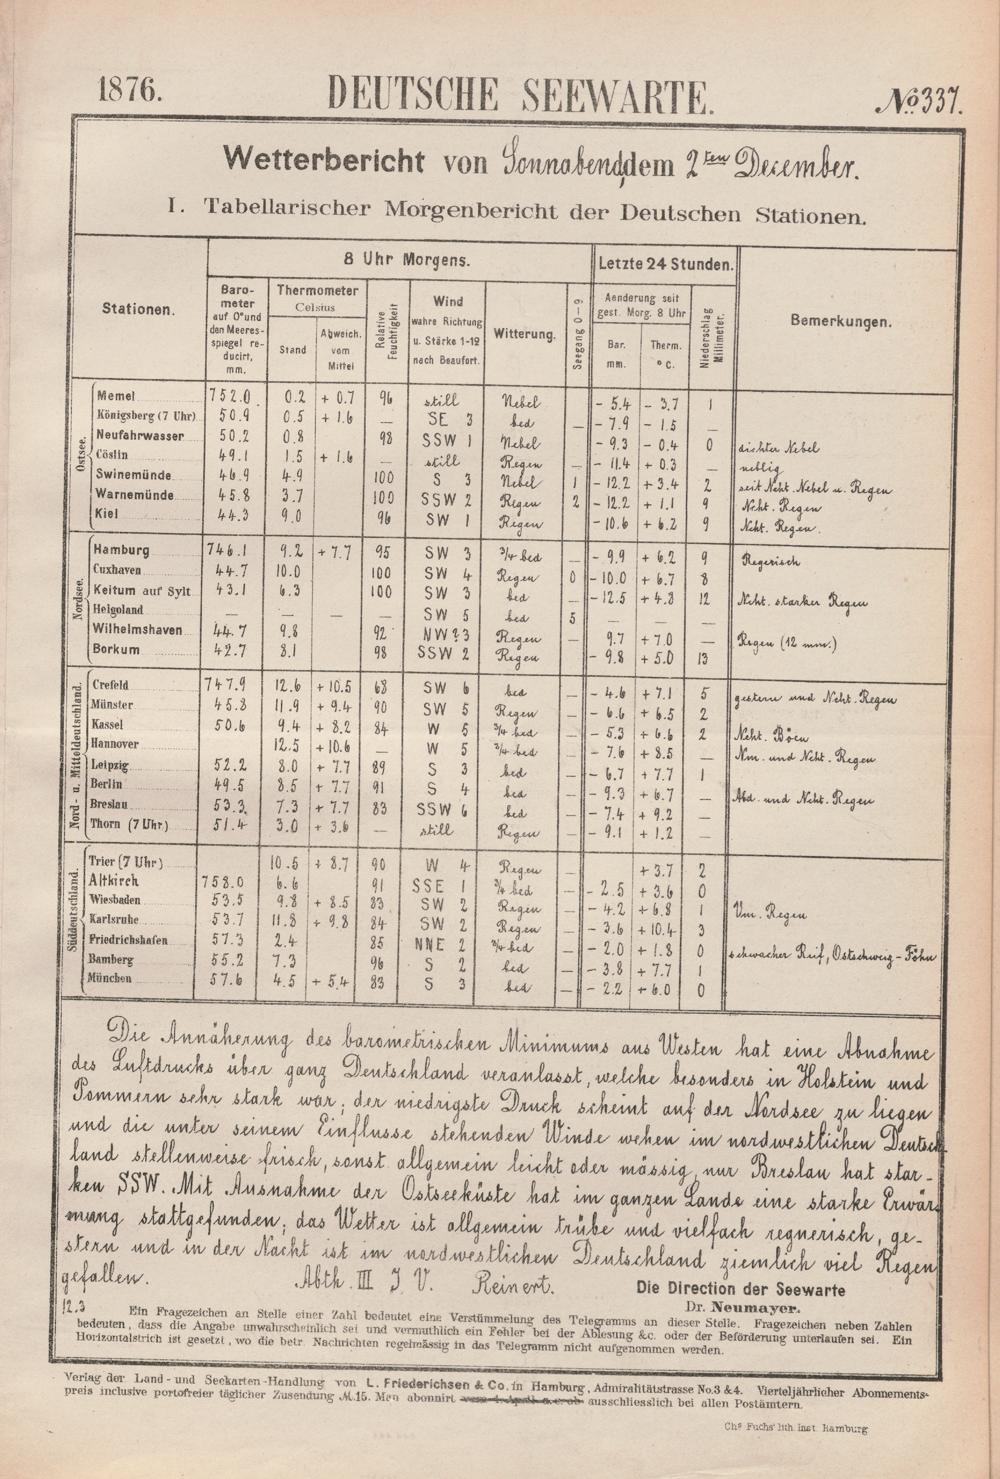 1876. DEUTSCHE SEEWARTE. No. 337.
Wetterbericht von Sonnabend, dem 2ten December.
I. Tabellarischer Morgenbericht der Deutschen Stationen.
Stationen. 8 Uhr Morgens. Letzte 24 Stunden. Bemerkungen.
Barometer auf 0° und den Meeresspiegel reducirt, mm. Thermometer Celsius Stand Abweich. vom Mittel Relative Feuchtigkeit Wind wahre Richtung u. Stärke 1-12 nach Beaufort. Witterung. Seegang 0-9 Aenderung seit gest. Morg. 8 Uhr Bar. mm. Therm. °C. Niederschlag Millimeter.
Ostsee.
Memel 752.0 0.2 + 0.7 96 still Nebel - 5.4 - 3.7 1
Königsberg (7 Uhr) 50.9 0.5 + 1.6 — SE 3 bed — - 7.9 - 1.5 —
Neufahrwasser 50.2 0.8 98 SSW 1 Nebel - 9.3 - 0.4 0 dichter Nebel
Cöslin 49.1 1.5 + 1.6 — still Regen — - 11.4 + 0.3 — neblig
Swinemünde 46.9 4.9 100 S 3 Nebel 1 - 12.2 + 3.4 2 seit Ncht. Nebel u. Regen
Warnemünde 45.8 3.7 100 SSW 2 Regen 2 - 12.2 + 1.1 9 Ncht. Regen
Kiel 44.3 9.0 96 SW 1 Regen - 10.6 + 6.2 9 Ncht. Regen.
Nordsee.
Hamburg 746.1 9.2 + 7.7 95 SW 3 3/4 bed — - 9.9 + 6.2 9 Regerisch
Cuxhaven 44.7 10.0 100 SW 4 Regen 0 - 10.0 + 6.7 8
Keitum auf Sylt 43.1 6.3 100 SW 3 bed — - 12.5 + 4.8 12 Ncht. starker Regen
Helgoland — — — SW 5 bed 5 — — —
Wilhelmshaven 44.7 9.8 92 NW? 3 Regen — 9.7 + 7.0 — Regen (12 mm.)
Borkum 42.7 8.1 98 SSW 2 Regen - 9.8 + 5.0 13
Nord- u. Mitteldeutschland.
Crefeld 747.9 12.6 + 10.5 68 SW 6 bed — - 4.6 + 7.1 5 gestern und Ncht. Regen
Münster 45.8 11.9 + 9.4 90 SW 5 Regen — - 6.6 + 6.5 2
Kassel 50.6 9.4 + 8.2 84 W 5 3/4 bed — - 5.3 + 6.6 2 Ncht. Böen
Hannover 12.5 + 10.6 — W 5 3/4 bed — - 7.6 + 8.5 — Nm. und Ncht. Regen
Leipzig 52.2 8.0 + 7.7 89 S 3 bed — - 6.7 + 7.7 1
Berlin 49.5 8.5 + 7.7 91 S 4 bed — - 9.3 + 6.7 — Abd. und Ncht. Regen
Breslau 53.3 7.3 + 7.7 83 SSW 6 bed — - 7.4 + 9.2 —
Thorn (7 Uhr) 51.4 3.0 + 3.6 — still Regen — - 9.1 + 1.2 —
Süddeutschland.
Trier (7 Uhr) 10.5 + 8.7 90 W 4 Regen + 3.7 2
Altkirch 758.0 6.6 91 SSE 1 3/4 bed — - 2.5 + 3.6 0
Wiesbaden 53.5 9.8 + 8.5 83 SW 2 Regen — - 4.2 + 6.8 1 Vm. Regen
Karlsruhe 53.7 11.8 + 9.8 84 SW 2 Regen — - 3.6 + 10.4 3
Friedrichshafen 57.3 2.4 85 NNE 2 3/4 bed — - 2.0 + 1.8 0 schwacher Reif, Ostschweiz-Föhn
Bamberg 55.2 7.3 96 S 2 bed — - 3.8 + 7.7 1
München 57.6 4.5 + 5.4 83 S 3 bed — - 2.2 + 6.0 0
Die Annäherung des barometrischen Minimums aus Westen hat eine Abnahme
des Luftdrucks über ganz Deutschland veranlasst, welche besonders in Holstein und
Pommern sehr stark war; der niedrigste Druck scheint auf der Nordsee zu liegen
und die unter seinem Einflusse stehenden Winde wehen im nordwestlichen Deutsch-
land stellenweise frisch, sonst allgemein leicht oder mässig, nur Breslau hat star-
ken SSW. Mit Ausnahme der Ostseeküste hat im ganzen Lande eine starke Erwär-
mung stattgefunden; das Wetter ist allgemein trübe und vielfach regnerisch, ge-
stern und in der Nacht ist im nordwestlichen Deutschland ziemlich viel Regen
gefallen. Abth. III I. V. Reinert. Die Direction der Seewarte
Dr. Neumayer.
12.3 Ein Fragezeichen an Stelle einer Zahl bedeutet eine Verstümmelung des Telegramms an dieser Stelle. Fragezeichen neben Zahlen
bedeuten, dass die Angabe unwahrscheinlich sei und vermuthlich ein Fehler bei der Ablesung &c. oder der Beförderung unterlaufen sei. Ein
Horizontalstrich ist gesetzt, wo die betr. Nachrichten regelmässig in das Telegramm nicht aufgenommen werden.
Verlag der Land- und Seekarten-Handlung von L. Friederichsen & Co. in Hamburg, Admiralitätstrasse No. 3 & 4. Vierteljährlicher Abonnements-
preis inclusive portofreier täglicher Zusendung M. 15. Man abonnirt ausschliesslich bei allen Postämtern.
Chs Fuchs' lith. Inst. Hamburg